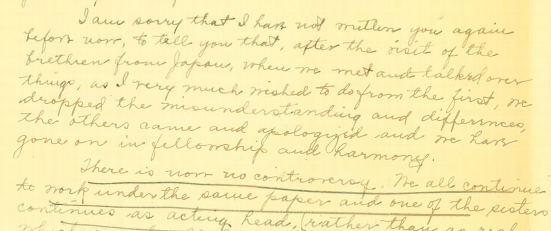 I am sorry that I have not written you again
before now, to tell you that, after the visit of the
brethren from Japan, when we met and talked over
things, as I very much wished to do from the first, we
dropped the misunderstanding and differences,
the others came and apologized and we have
gone on in fellowship and harmony.
There is now no controversy. We all continue
to work under the same paper and one of the sisters
continues as acting head, (rather than as real